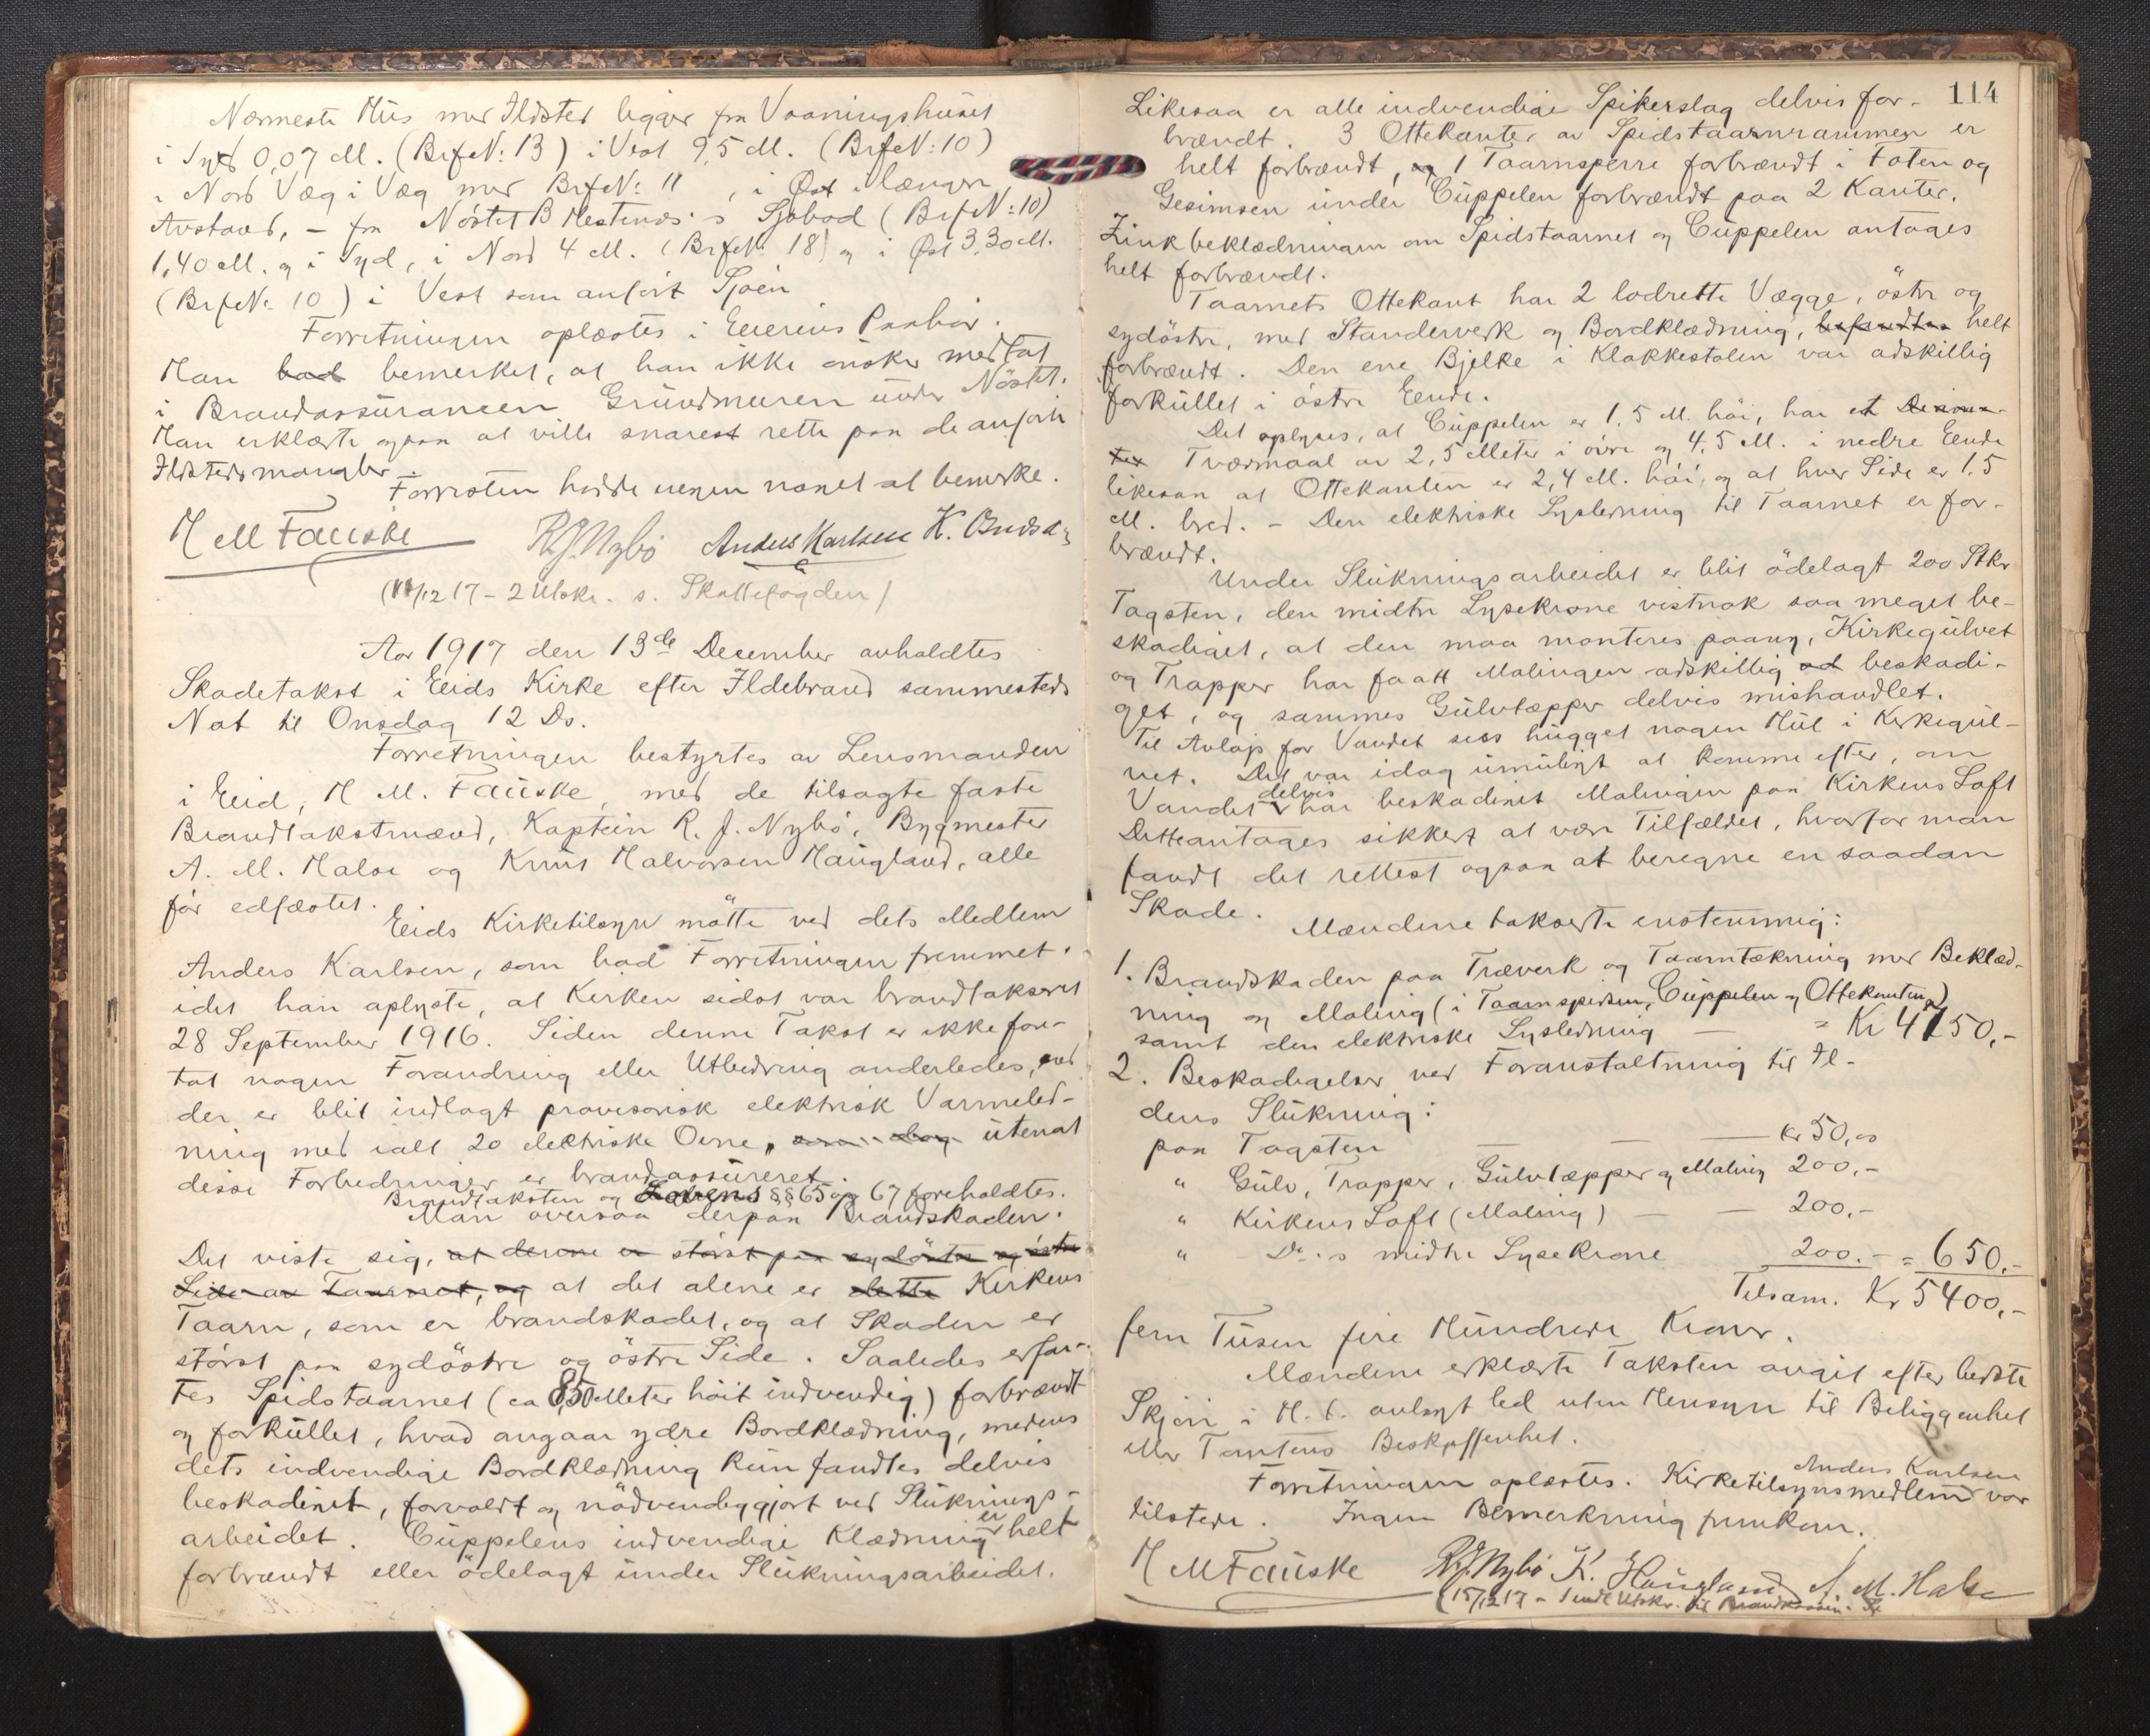 Nærmeste Hus med Ildsted ligger fra Vaaningshuset
i Syd 0,07 M. (BrfN: 13) i Vest 9,5 M. (BrfN: 10)
i Nord Væg i Væg med BrfN: 11, i Øst i længer
Avstand, - fra Nöstet B Hestenæs's Sjöbod (BrfN: 10)
1,40 M. og i Syd, i Nord 4 M. (BrfN: 18) og i Øst 3.30 M.
(BrfN: 10) i Vest som anfört Sjöen
Forretningen oplæstes i Eierens Paahör.
Han bad bemerket, at han ikke önsker medtat
i Brandassurancen Grundmuren under Nöstet.
Han erklærte ogsaa at ville snarest rette paa de anförte
Ildstedsmangler.
Forresten hadde ingen noget at bemerke.
H M Fauske R J. Nybö Anders Karlsen K.
(11/12 17 - 2 Utskr. s. Skattefogden)
Aar 1917 den 13de December avholdtes
Skadetakst i Eids Kirke efter Ildebrand sammesteds
Nat til Onsdag 12 Ds.
Forretningen bestyrtes av Lensmanden
i Eid, H M. Fauske, med de tilsagte faste
Brandtakstmænd, Kaptein R. J. Nybö, Bygmester
A. M. Halse og Knut Halvorsen Haugland, alle
för edfæstet.
Eids Kirketilsyn mötte ved dets Medlem
Anders Karlsen, som bad Forretningen fremmet.
idet han oplyste, at Kirken sidst var brandtaksert
28 September 1916. Siden denne Takst er ikke fore-
tat nogen Forandring eller Utbedring anderledes, end
der er blit indlagt provisorisk elektrisk Varmeled-
ning med ialt 20 elektriske Ovne, som dog utenat
disse Forbedringer er brandassureret.
Brandtaksten og Lovens §§ 65 og 67 foreholdtes.
Man oversaa derpaa Brandskaden.
Det viste sig, at denne er störst paa sydöstre og östre
Side av Taarnet, og at det alene er dette Kirkens
Taarn, som er brandskadet, og at Skaden er
störst paa sydöstre og östre Side. Saaledes erfar-
tes Spidstaarnet (ca 8,50 Meter höit indvendig) forbrændt
og forkullet, hvad angaar ydre Bordklædning, medens
dets indvendige Bordklædning kun fandtes delvis
beskadiget, forvoldt og nödvendiggjort ved Sluknings-
arbeidet. Cuppelens indvendige Klædning er helt
forbrændt eller ödelagt under Slukningsarbeidet.
114
Likesaa er alle indvendige Spikerslag delvis for-
brændt. 3 Ottekanter av Spidstaarnrammen er
helt forbrændt, og 1 Taarnsperre forbrændt i Foten og
Gesimsen under Cuppelen forbrændt paa 2 Kanter.
Zinkbeklædningen om Spidstaarnet og Cuppelen antages
helt forbrændt.
Taarnets Ottekant har 2 lodrette Vægge, östre og
sydöstre, med Standerverk og Bordklædning, befandtes helt
forbrændt. Den ene Bjelke i Klokkestolen var adskillig
forkullet i östre Ende.
Det oplyses, at Cuppelen er 1.5 M. höi, har et Diame-
ter Tværmaal av 2,5 Meter i övre og 4,5 M. i nedre Ende
likesaa at Ottekanten er 2,4 M. höi, og at hver Side er 1.5
M. bred. - Den elektriske Lysledning til Taarnet er for-
brændt.
Under Slukningsarbeidet er blit ödelagt 200 Stkr
Tagsten, den midtre Lysekrone vistnok saa meget be-
skadiget, at den maa monteres paany, Kirkegulvet
og Trapper har faatt Malingen adskillig beskadi-
get, og sammes Gulvtæpper delvis mishandlet.
Til Avlöp for Vandet sees hugget nogen Hul i Kirkegul-
vet. Det var idag umuligt at komme efter, om
Vandet delvis har beskadiget Malingen paa Kirkens Loft
Dette antages sikkert at være Tilfældet, hvorfor man
fandt det rettest ogsaa at beregne en saadan
Skade.
Mændene takserte enstemmig:
1. Brandskaden paa Træverk og Taarntækning med Beklæd-
ning og Maling (i Taarnspiren, Cuppelen og Ottekanten)
samt den elektriske Lysledning — = Kr 4750,-
2. Beskadigelser ved Foranstaltning til Il-
dens Slukning:
paa Tagsten — — — kr 50,00
" Gulv, Trapper, Gulvtæpper og Maling 200,-
" Kirkens Loft (Maling) — — 200,-
" Do.s midtre Lysekrone 200.- = 650,-
Tilsam. Kr 5400,-
fem Tusen fire Hundrede Kroner.
Mændene erklærte Taksten avgit efter bedste
Skjön i H. t. avlagt Ed uten Hensyn til Beliggenhet
eller Tomtens Beskaffenhet.
Forretningen oplæstes. Kirketilsynsmedlem Anders Karlsen var
tilstede. Ingen Bemerkning fremkom.
H M Fauske R J. Nybö K. Haugland A. M. Halse
(15/12 17 - 1 Utskr. til Brandkassen. Fr